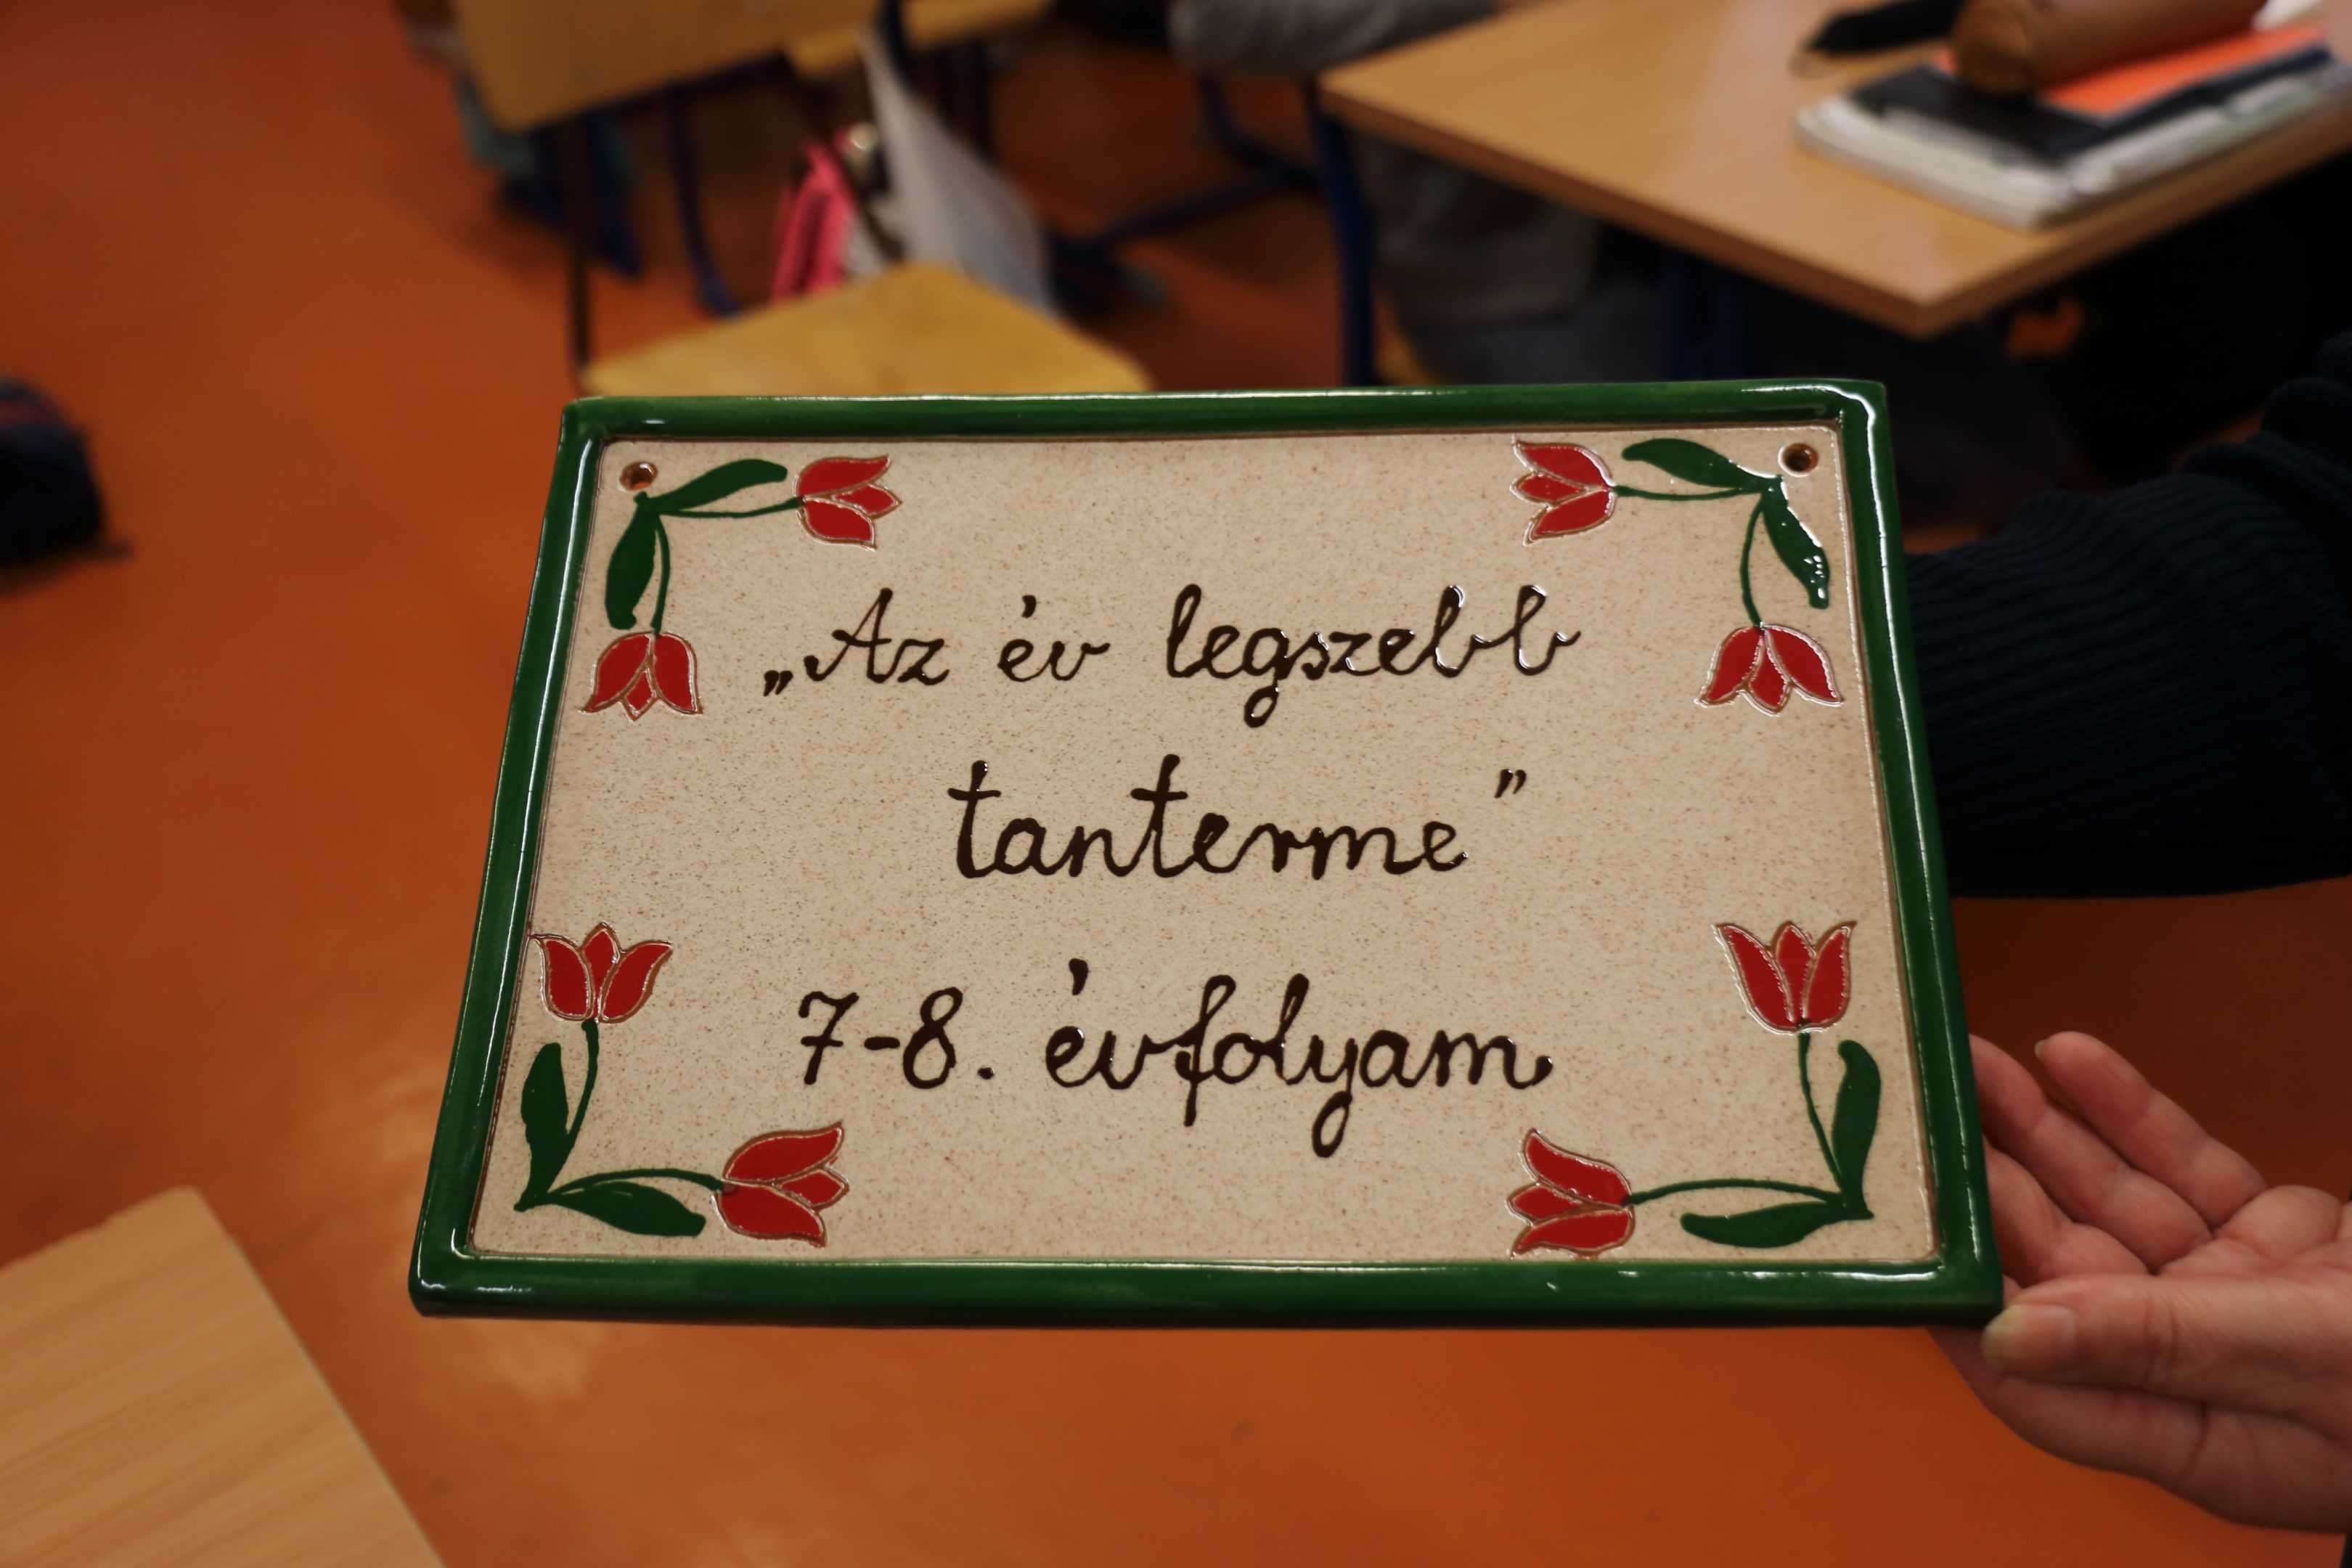 „Az év legszebb
tanterme”
7-8. évfolyam